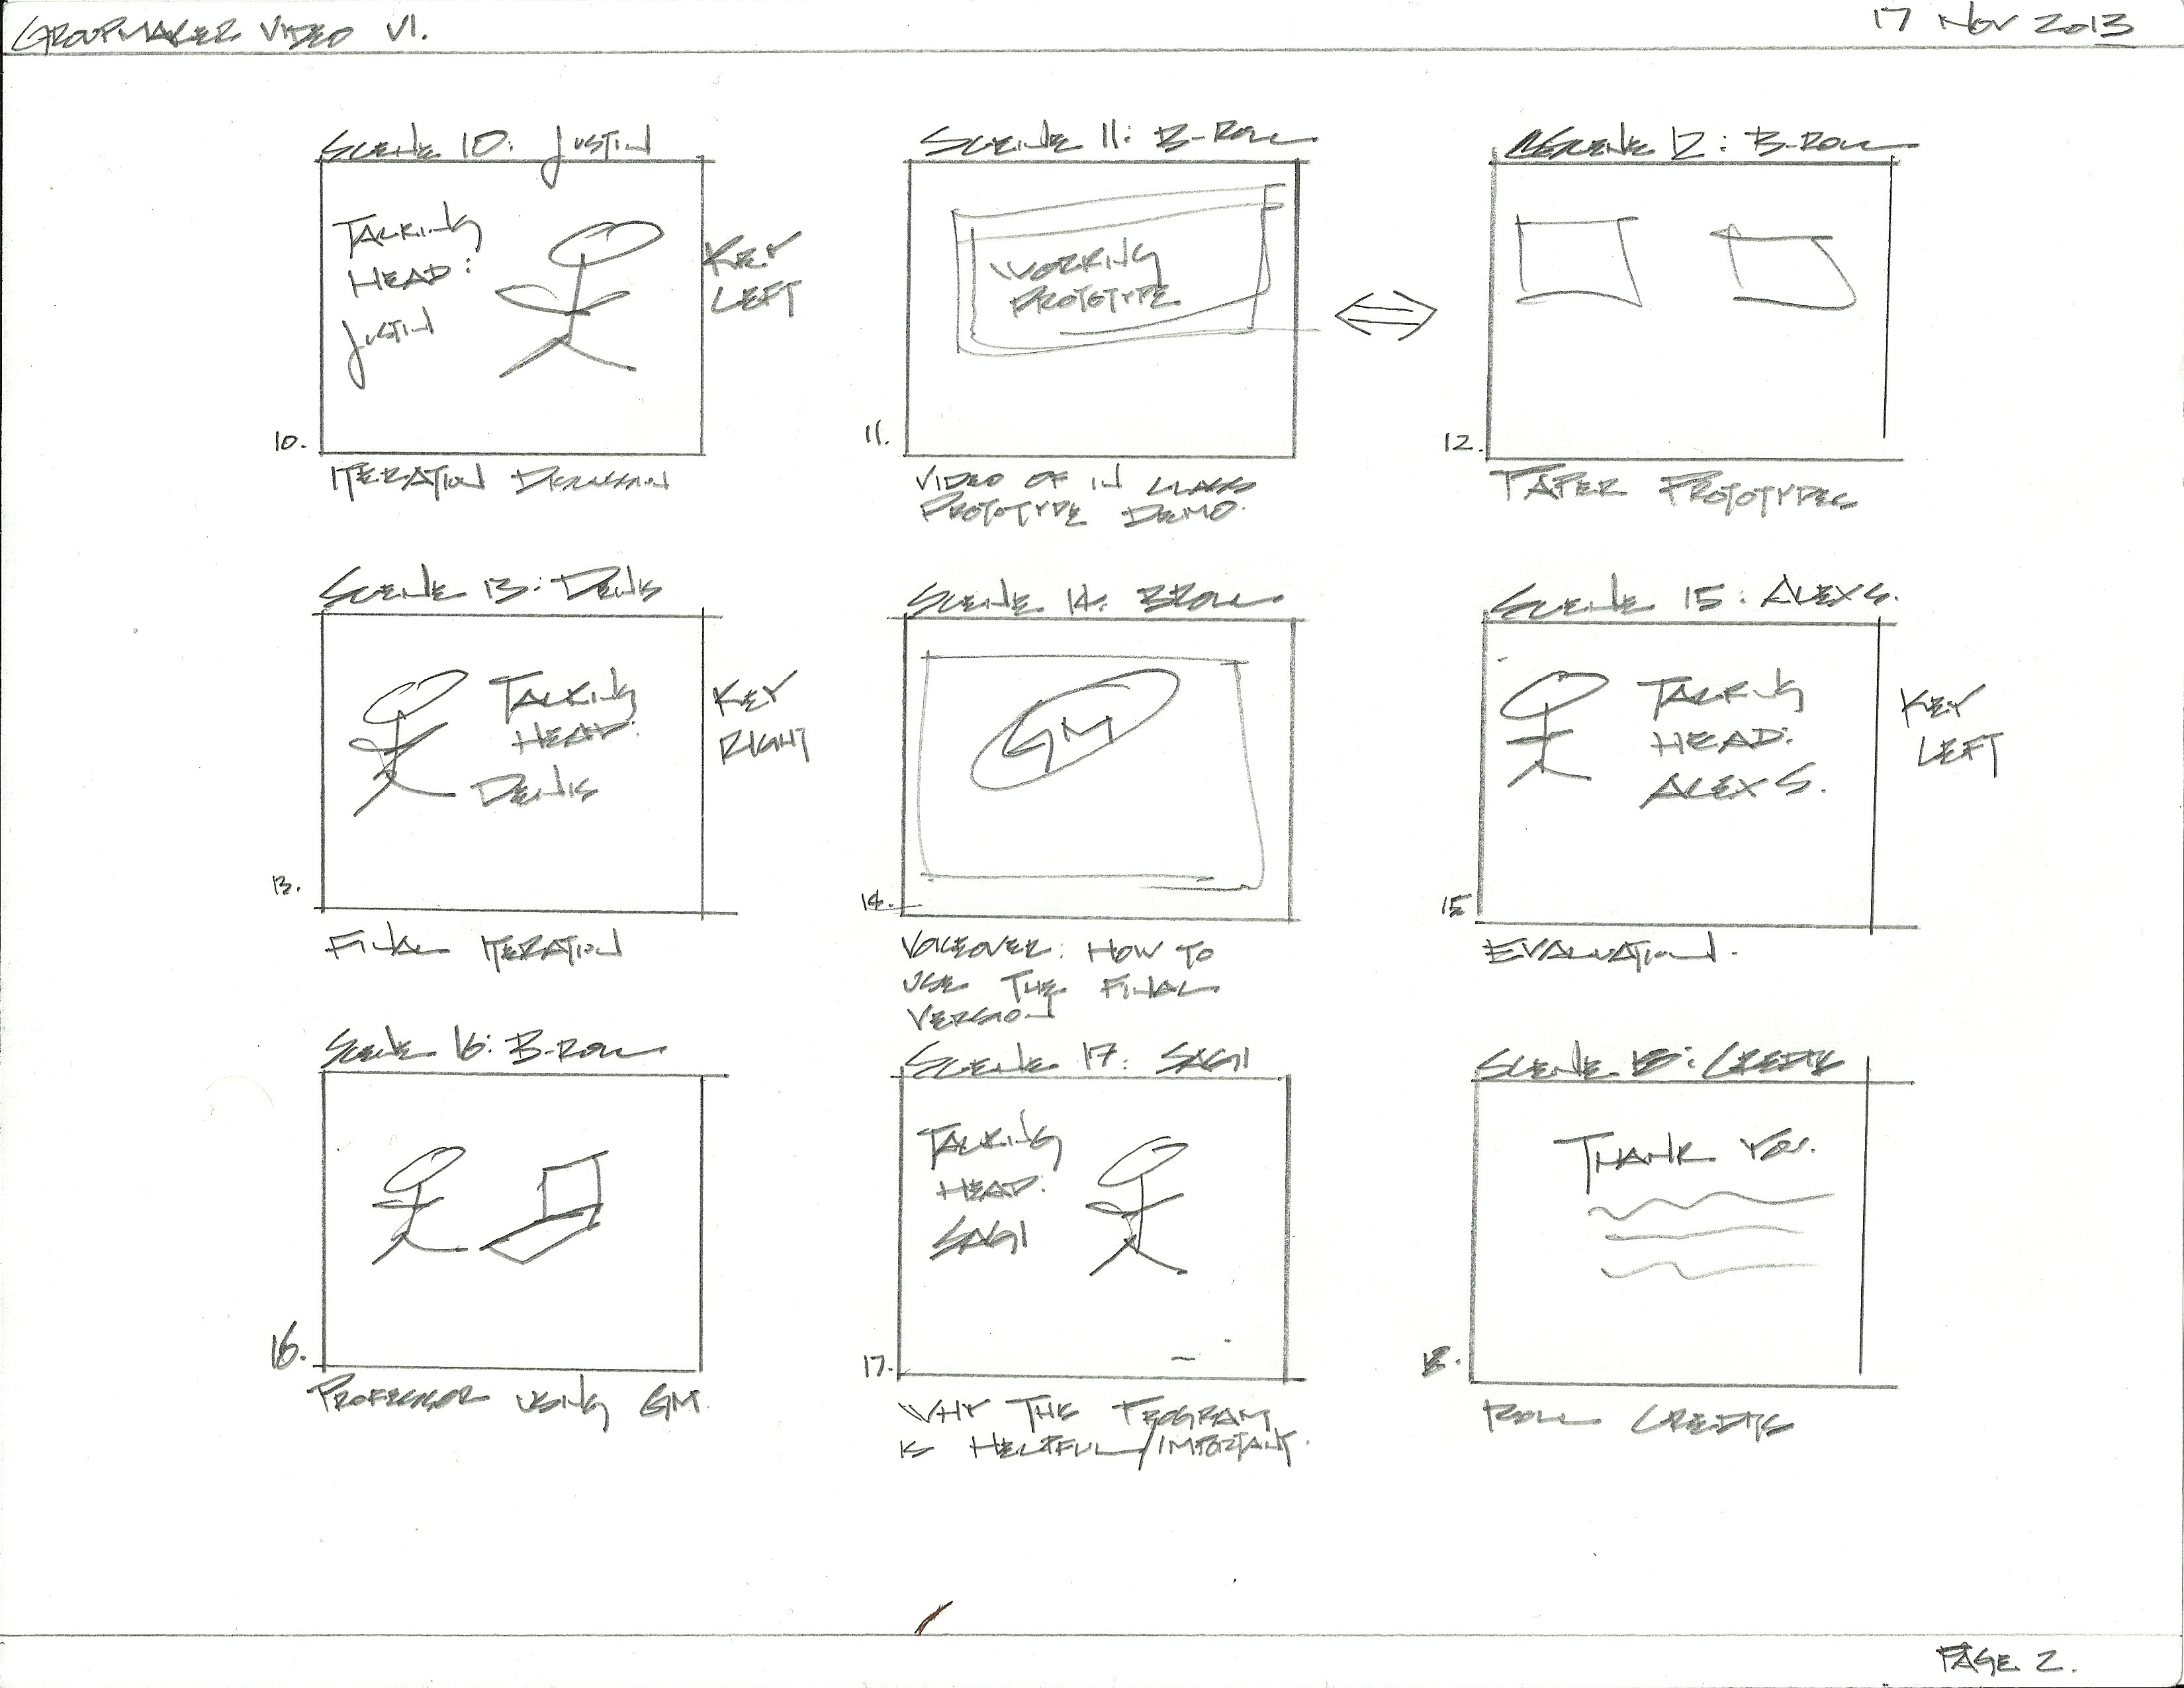 GROUPMAKER VIDEO V1.
17 NOV 2013
SCENE 10: JUSTIN
TALKING
HEAD:
JUSTIN
KEY
LEFT
10.
ITERATION DISCUSSION
SCENE 11: B-ROLL
WORKING
PROTOTYPE
11.
VIDEO OF IN CLASS
PROTOTYPE DEMO.
SCENE 12: B-ROLL
12.
PAPER PROTOTYPES
SCENE 13: DENIS
TALKING
HEAD:
DENIS
KEY
RIGHT
13.
FINAL ITERATION
SCENE 14: BROLL
GM
14.
VOICEOVER: HOW TO
USE THE FINAL
VERSION
SCENE 15: ALEX S.
TALKING
HEAD:
ALEX S.
KEY
LEFT
15
EVALUATION.
SCENE 16: B-ROLL
16.
PROFESSOR USING GM.
SCENE 17: SAGI
TALKING
HEAD:
SAGI
17.
WHY THE PROGRAM
IS HELPFUL/IMPORTANT.
SCENE 18: CREDITS
THANK YOU.
18.
ROLL CREDITS
PAGE 2.